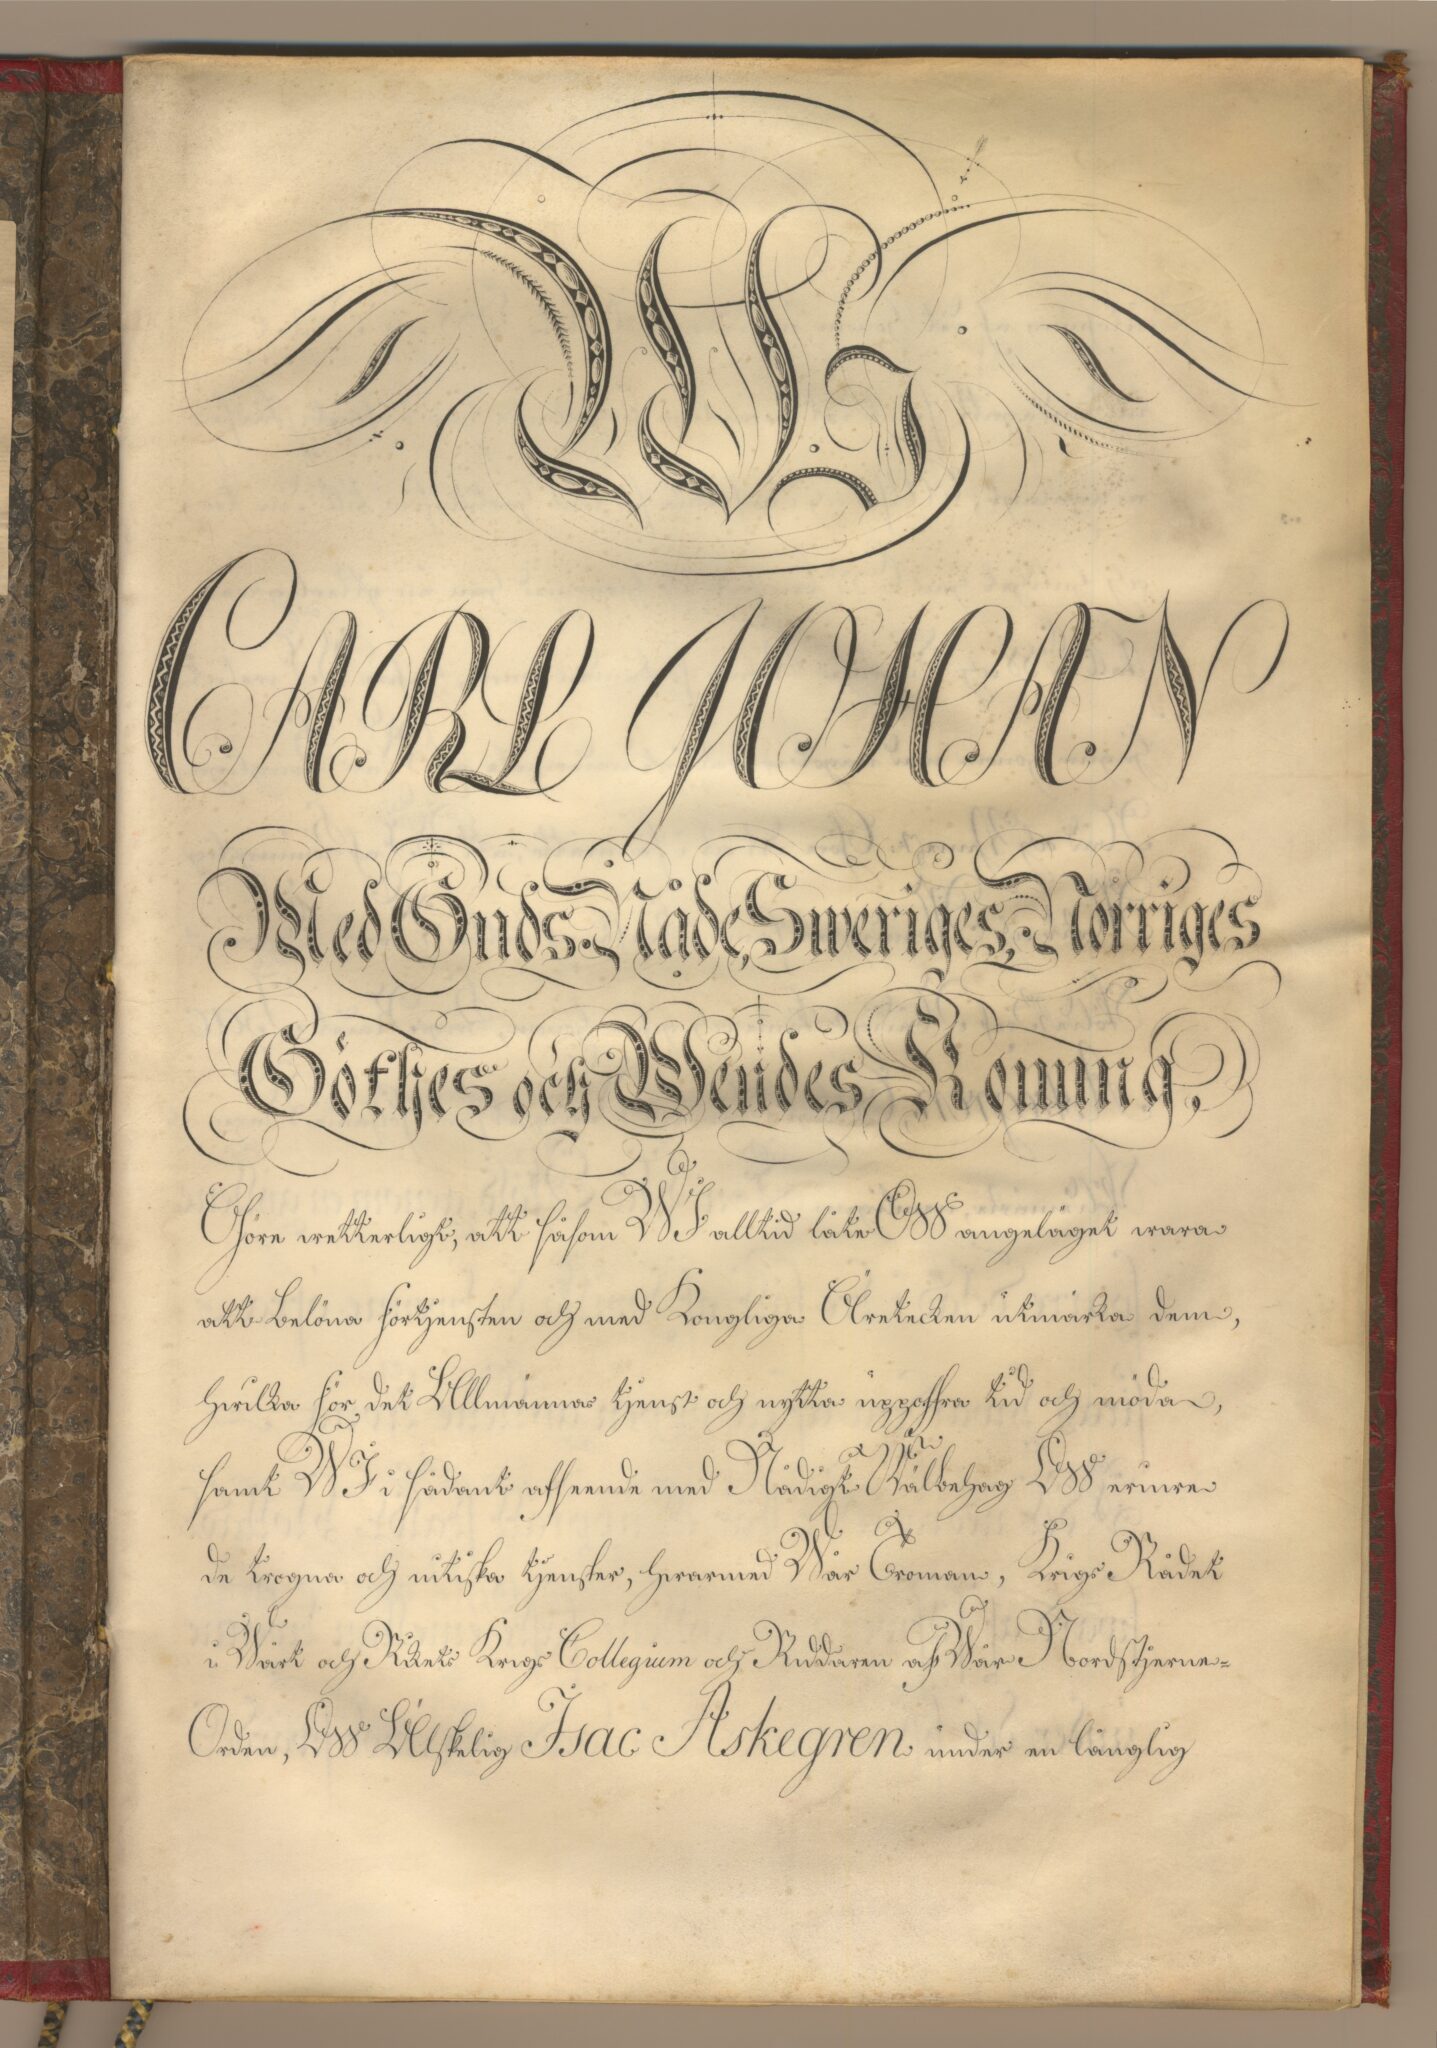 Wi
CARL JOHAN
Med Guds Nåde, Sweriges, Norriges
Göthes och Wendes Konung,
Göre wetterligt, att såsom WI alltid låte OSS angeläget wara
att belöna förtjensten och med Kongliga Äretecken utmärka dem,
hwilka för det Allmännas tjenst och nytta uppoffra tid och möda,
samt WI i sådant afseende med Nådigt Wälbehag OSS erinre
de trogna och nitiska tjenster, hwarmed Wår Troman, Krigs Rådet
i Wårt och Rikets Krigs Collegium och Riddaren af Wår Nordstjerne=
Orden, OSS Älskelig Isac Askegren under en långlig